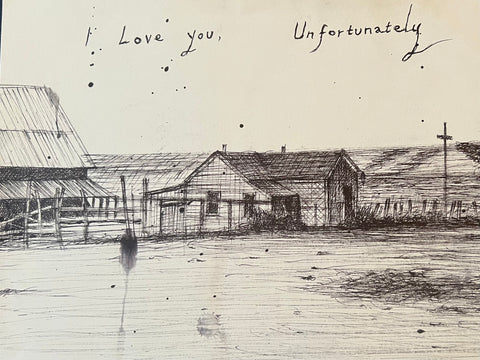 I Love you, Unfortunately